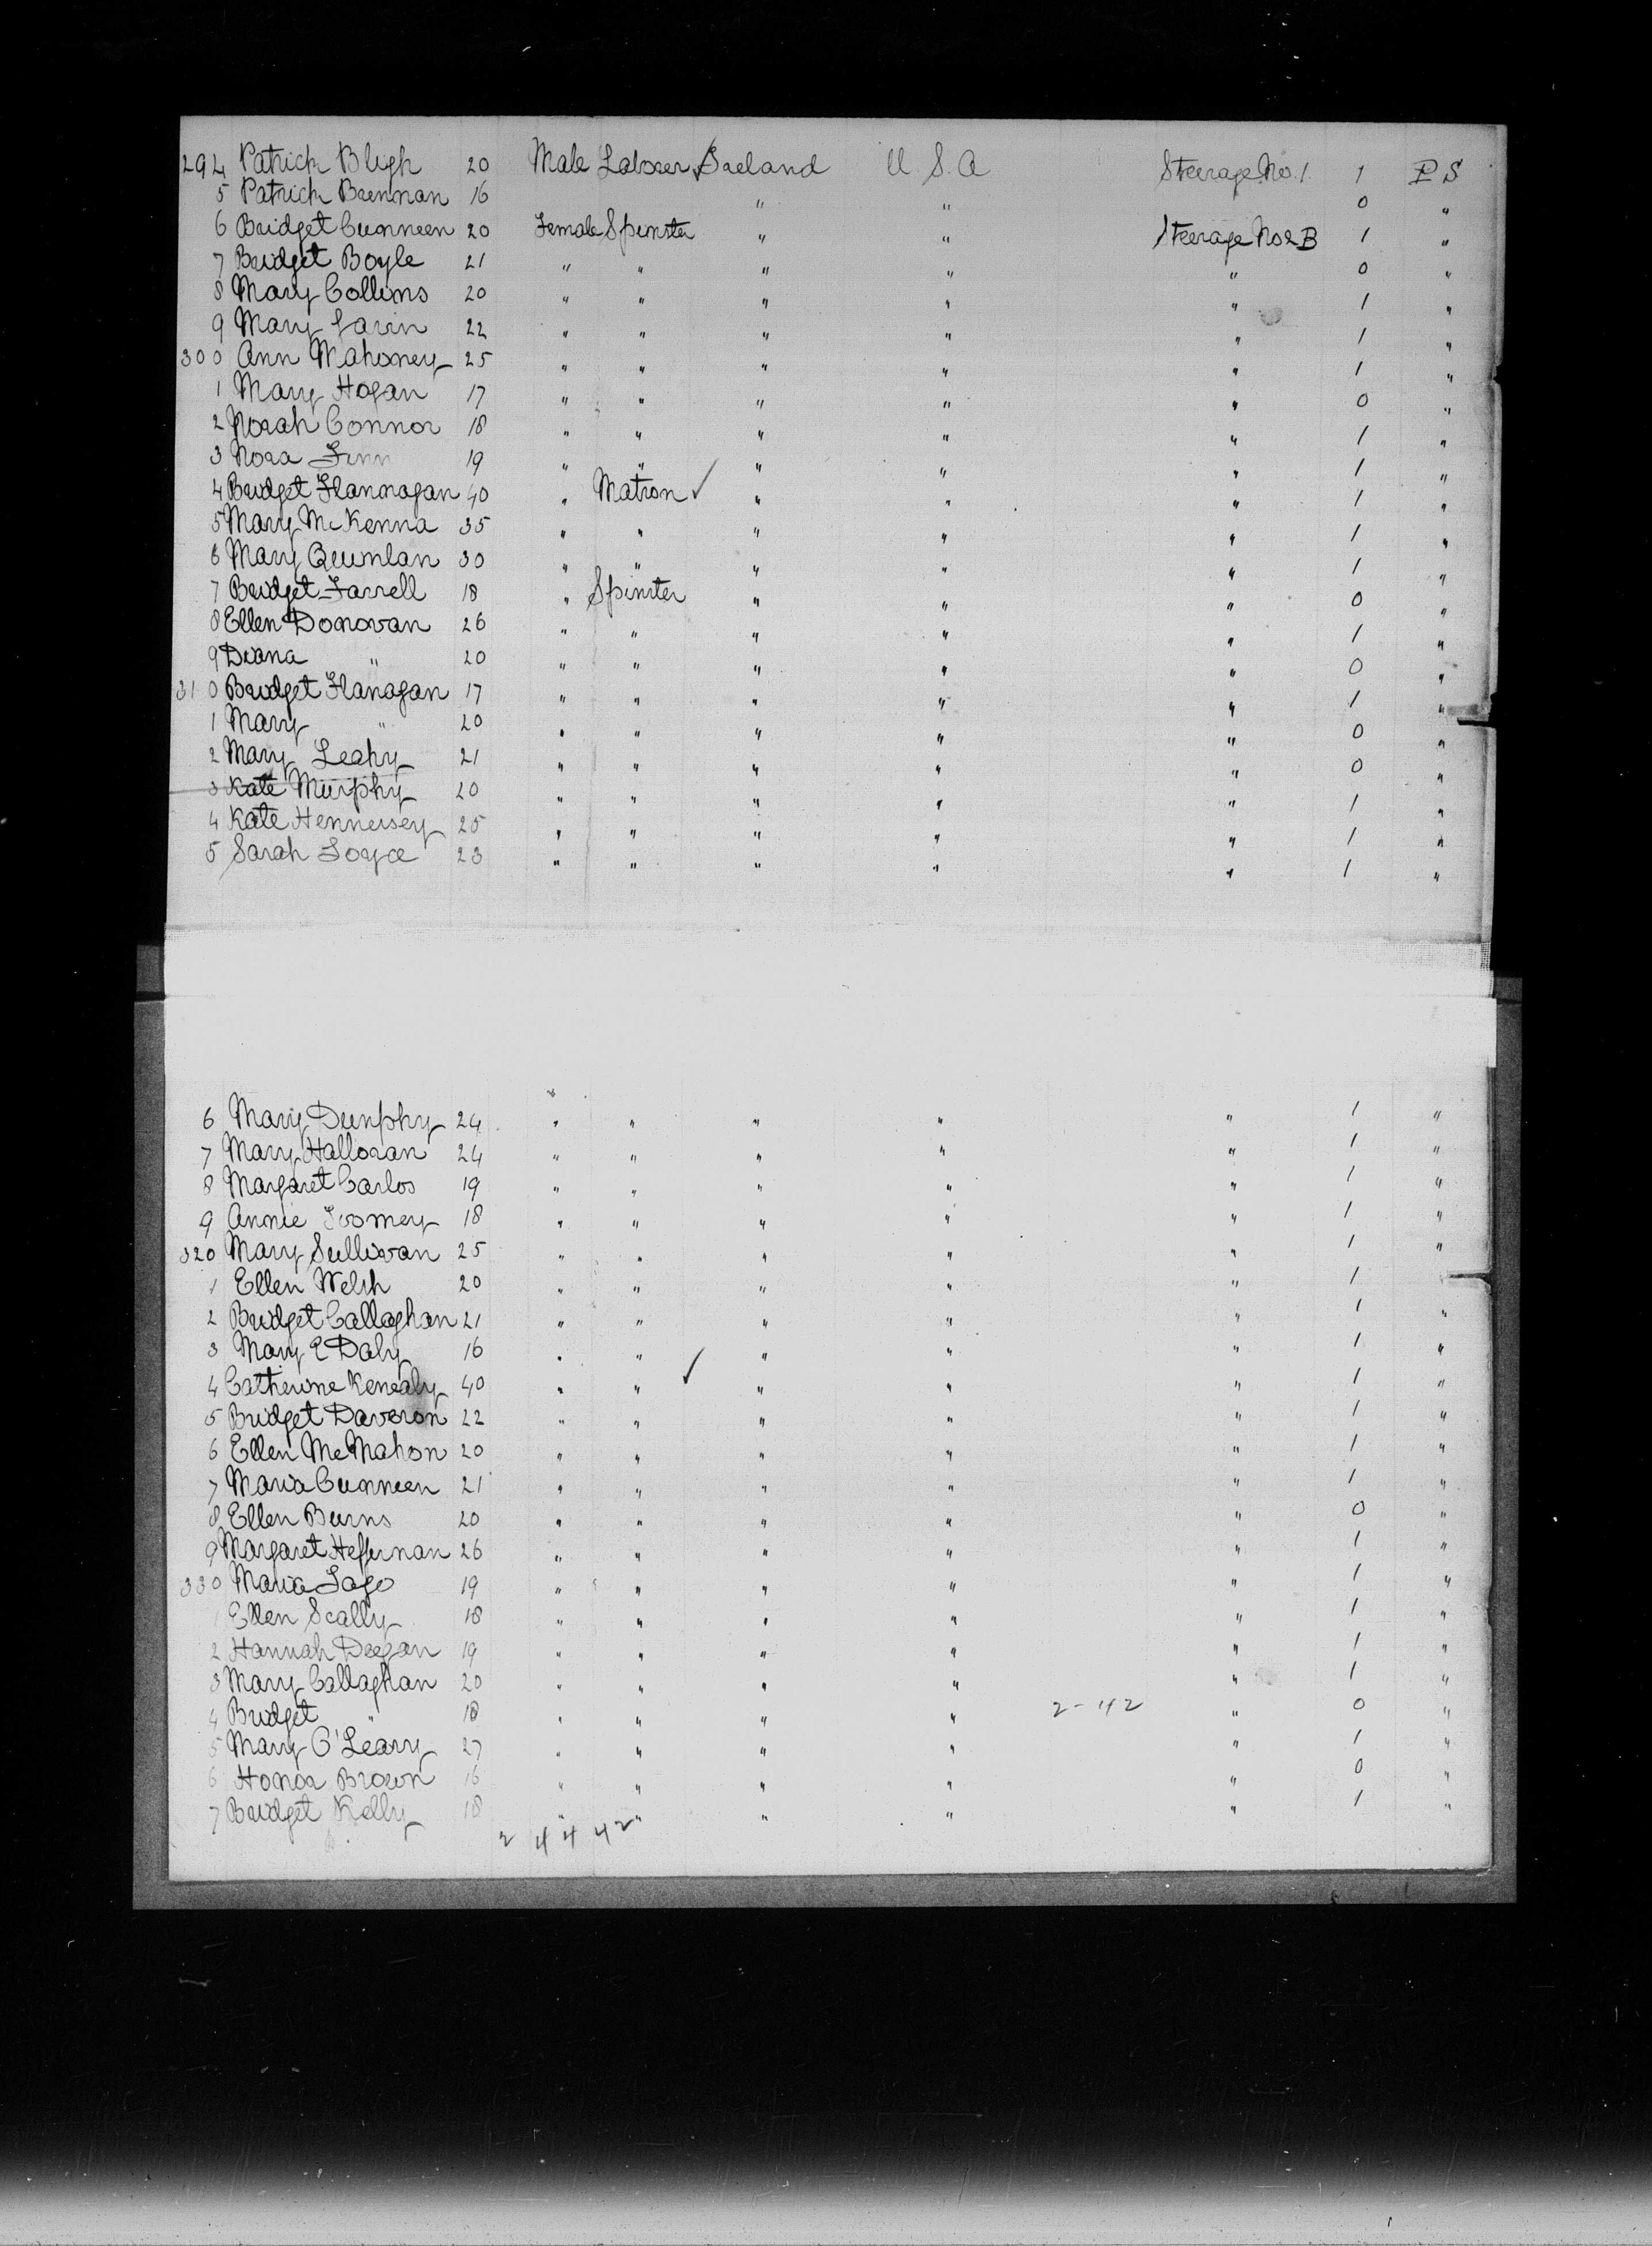 294 Patrick Bligh 20 Male Laborer Ireland U S. A Steerage No. 1. 1 P S
5 Patrick Brennan 16 " " 0 "
6 Bridget Cunneen 20 Female Spinster " " Steerage No 2 B 1 "
7 Bridget Boyle 21 " " " " " 0 "
8 Mary Collins 20 " " " " " 1 "
9 Mary 22 " " " " " 1 "
300 Ann Mahoney 25 " " " " " 1 "
1 Mary Hogan 17 " " " " " 0 "
2 Norah Connor 18 " " " " " 1 "
3 Nora Finn 19 " " " " " 1 "
4 Bridget Flannagan 40 " Matron ✓ " " " 1 "
5 Mary McKenna 35 " " " " " 1 "
6 Mary Quinlan 30 " " " " " 1 "
7 Bridget Farrell 18 " Spinster " " " 0 "
8 Ellen Donovan 26 " " " " " 1 "
9 Diana " 20 " " " " " 0 "
310 Bridget Flanagan 17 " " " " " 1 "
1 Mary " 20 " " " " " 0 "
2 Mary Leahy 21 " " " " " 0 "
3 Kate Murphy 20 " " " " " 1 "
4 Kate Hennersey 25 " " " " " 1 "
5 Sarah Joyce 23 " " " " " 1 "
"
6 Mary Dunphy 24 " " " " " 1 "
7 Mary Halloran 24 " " " " " 1 "
8 Margaret Carlos 19 " " " " " 1 "
9 Annie Toomey 18 " " " " " 1 "
320 Mary Sullivan 25 " " " " " 1 "
1 Ellen Welsh 20 " " " " " 1
2 Bridget Callaghan 21 " " " " " 1 "
3 Mary E Daly 16 " " " " " 1 "
4 Catherine Kenealy 40 " " ✓ " " " 1 "
5 Bridget Daveron 22 " " " " " 1 "
6 Ellen McMahon 20 " " " " " 1 "
7 Maria Cunneen 21 " " " " " 1 "
8 Ellen Burns 20 " " " " " 0 "
9 Margaret Heffernan 26 " " " " " 1 "
330 Maria 19 " " " " " 1 "
1 Ellen Scally 18 " " " " " 1 "
2 Hannah Deegan 19 " " " " " 1 "
3 Mary Callaghan 20 " " " " " 1 "
4 Bridget " 18 " " " " 2-42 " 0 "
5 Mary O'Leary 27 " " " " " 1 "
6 Honor Brown 16 " " " " " 0 "
7 Bridget Kelly 18 " " " " " 1 "
2 4 4 42